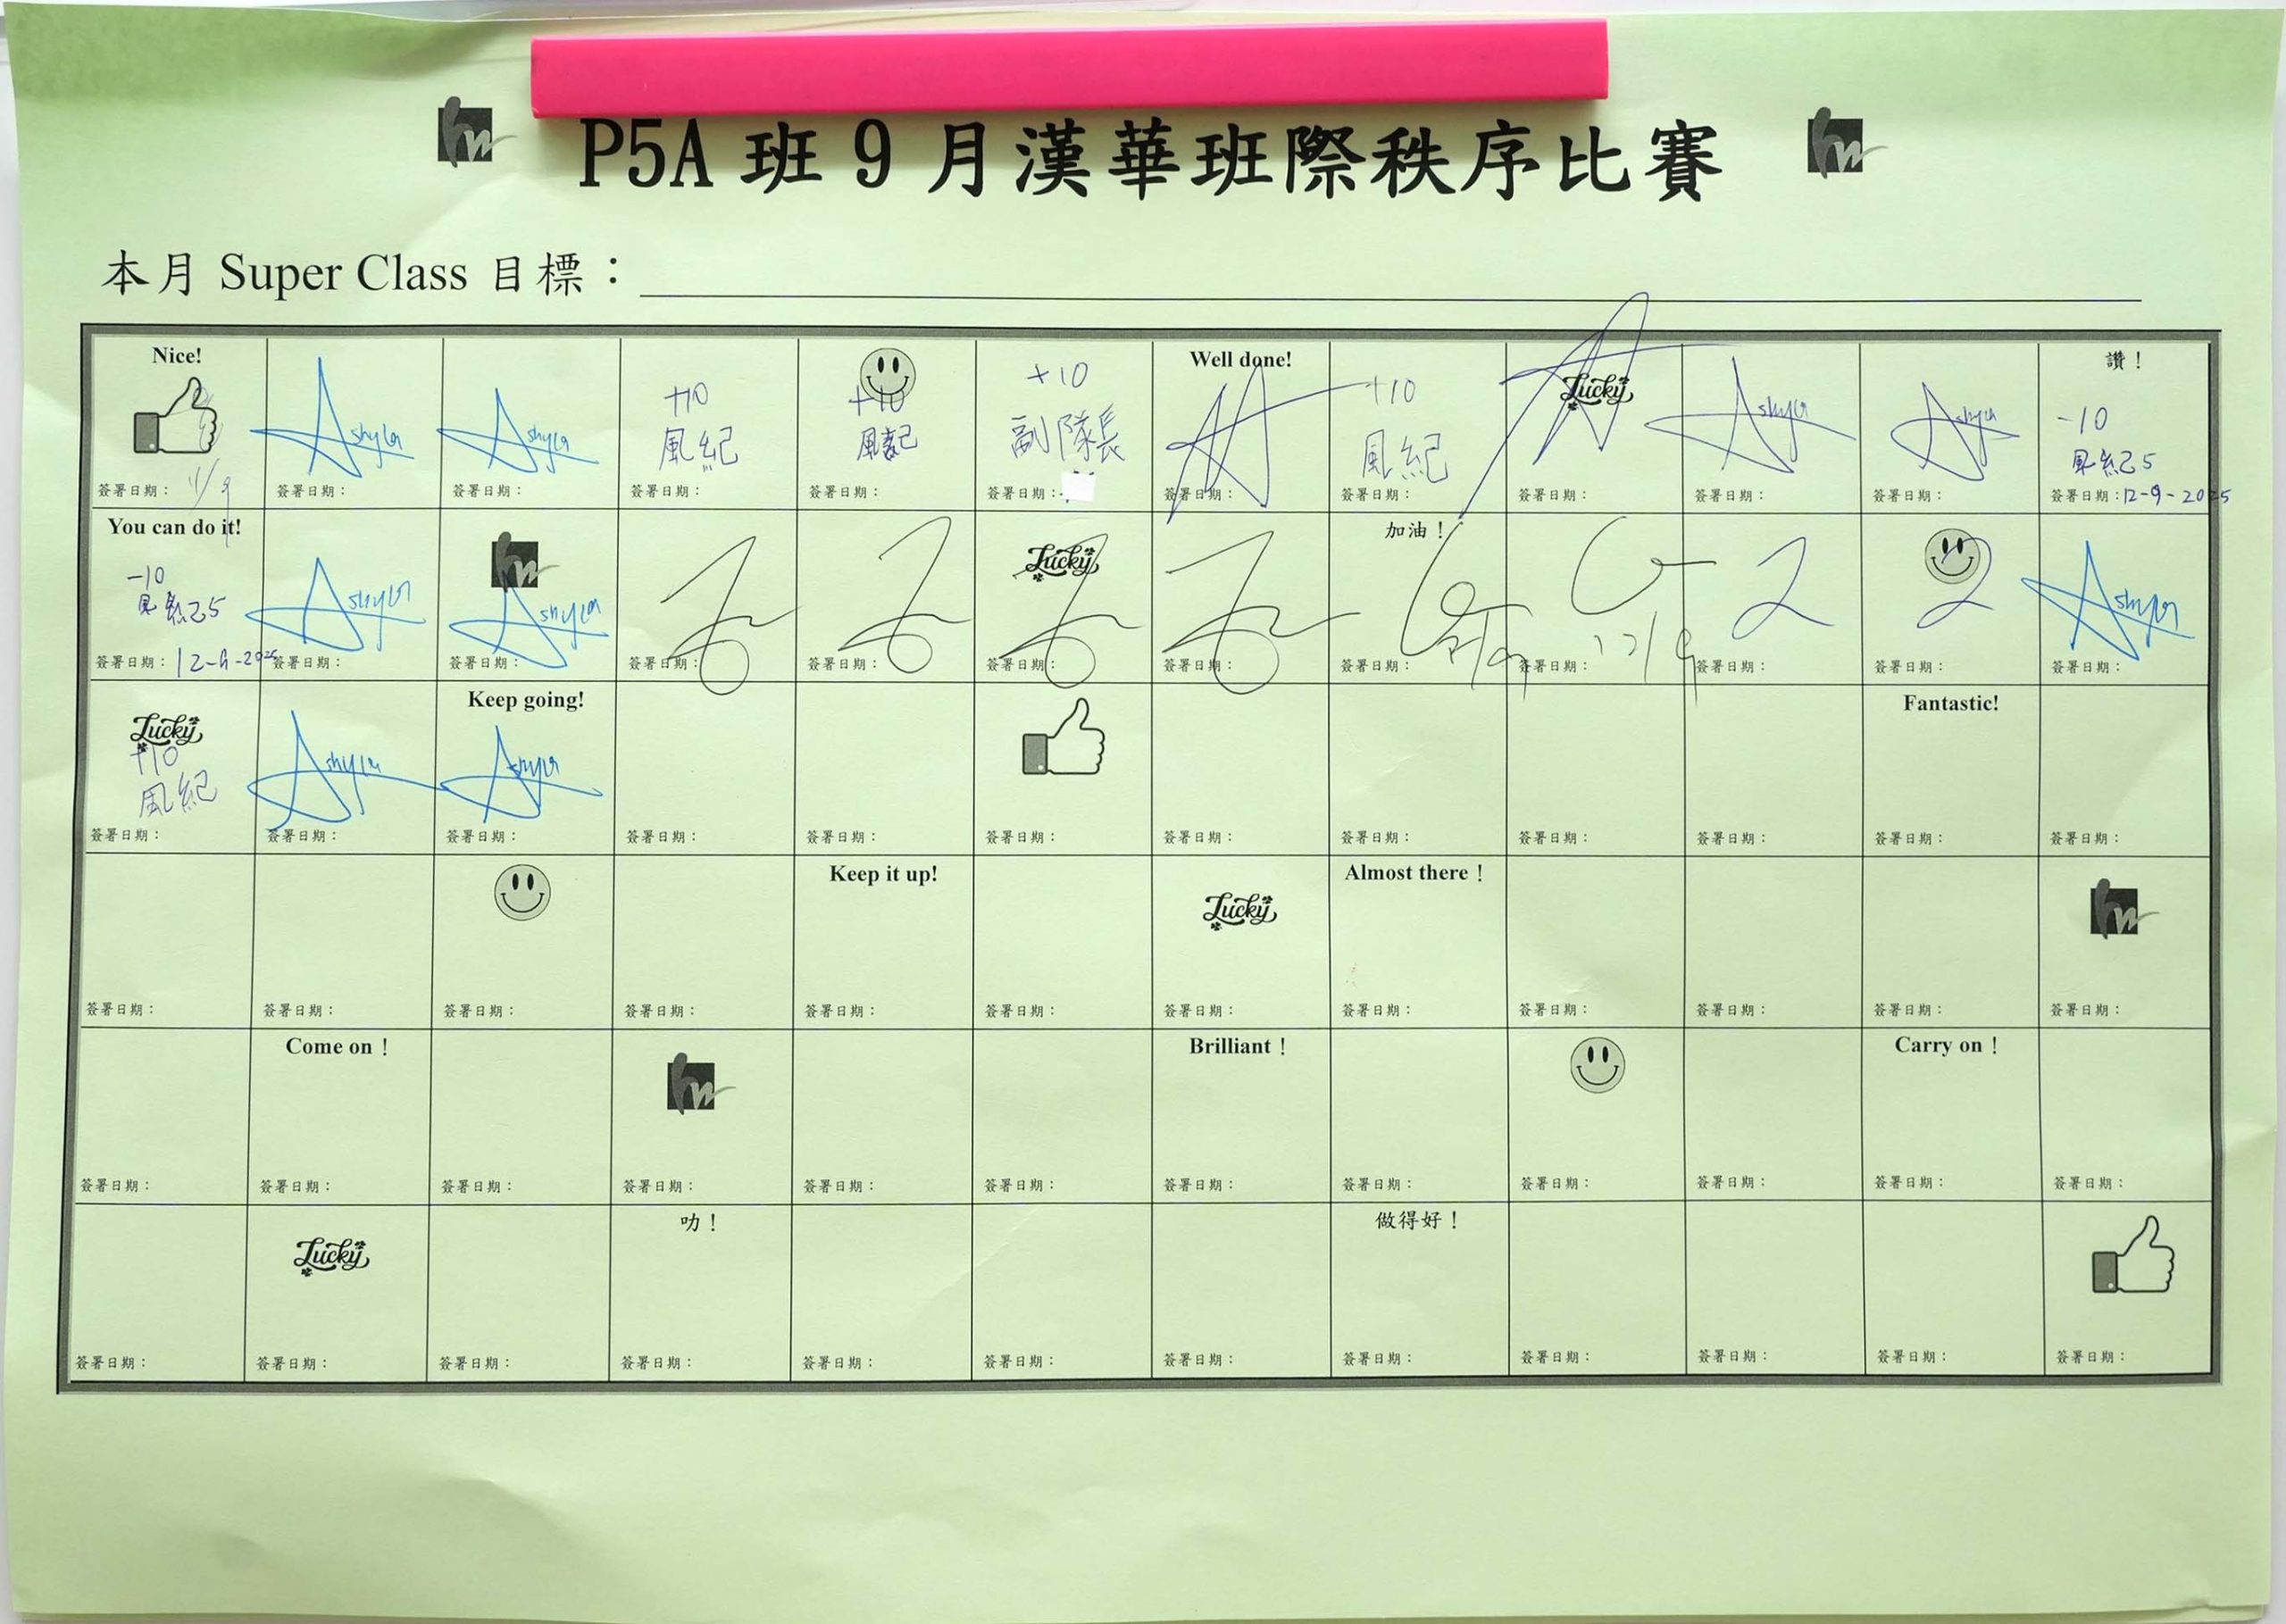 P5A 班 9 月漢華班際秩序比賽
本月 Super Class 目標：
Nice!
Well done!
讚！
Ashyla Ashyla +10 +10 +10 +10 Lucky Ashyla Ashyla -10
風紀 風紀 副隊長 風紀 風紀5
簽署日期： 11/9 簽署日期： 簽署日期： 簽署日期： 簽署日期： 簽署日期： 簽署日期： 簽署日期： 簽署日期： 簽署日期： 簽署日期： 簽署日期：12-9-2025
You can do it! 加油！
-10 Ashyla Ashyla Lucky 2 2 Ashyla
風紀5
簽署日期：12-9-2025 簽署日期： 簽署日期： 簽署日期： 簽署日期： 簽署日期： 簽署日期： 簽署日期： 簽署日期： 12/9 簽署日期： 簽署日期： 簽署日期：
Keep going! Fantastic!
Lucky
+10 Ashyla Ashyla
風紀
簽署日期： 簽署日期： 簽署日期： 簽署日期： 簽署日期： 簽署日期： 簽署日期： 簽署日期： 簽署日期： 簽署日期： 簽署日期： 簽署日期：
Keep it up! Almost there！
Lucky hw
簽署日期： 簽署日期： 簽署日期： 簽署日期： 簽署日期： 簽署日期： 簽署日期： 簽署日期： 簽署日期： 簽署日期： 簽署日期： 簽署日期：
Come on！ Brilliant！ Carry on！
hw
簽署日期： 簽署日期： 簽署日期： 簽署日期： 簽署日期： 簽署日期： 簽署日期： 簽署日期： 簽署日期： 簽署日期： 簽署日期： 簽署日期：
叻！ 做得好！
Lucky
簽署日期： 簽署日期： 簽署日期： 簽署日期： 簽署日期： 簽署日期： 簽署日期： 簽署日期： 簽署日期： 簽署日期： 簽署日期： 簽署日期：